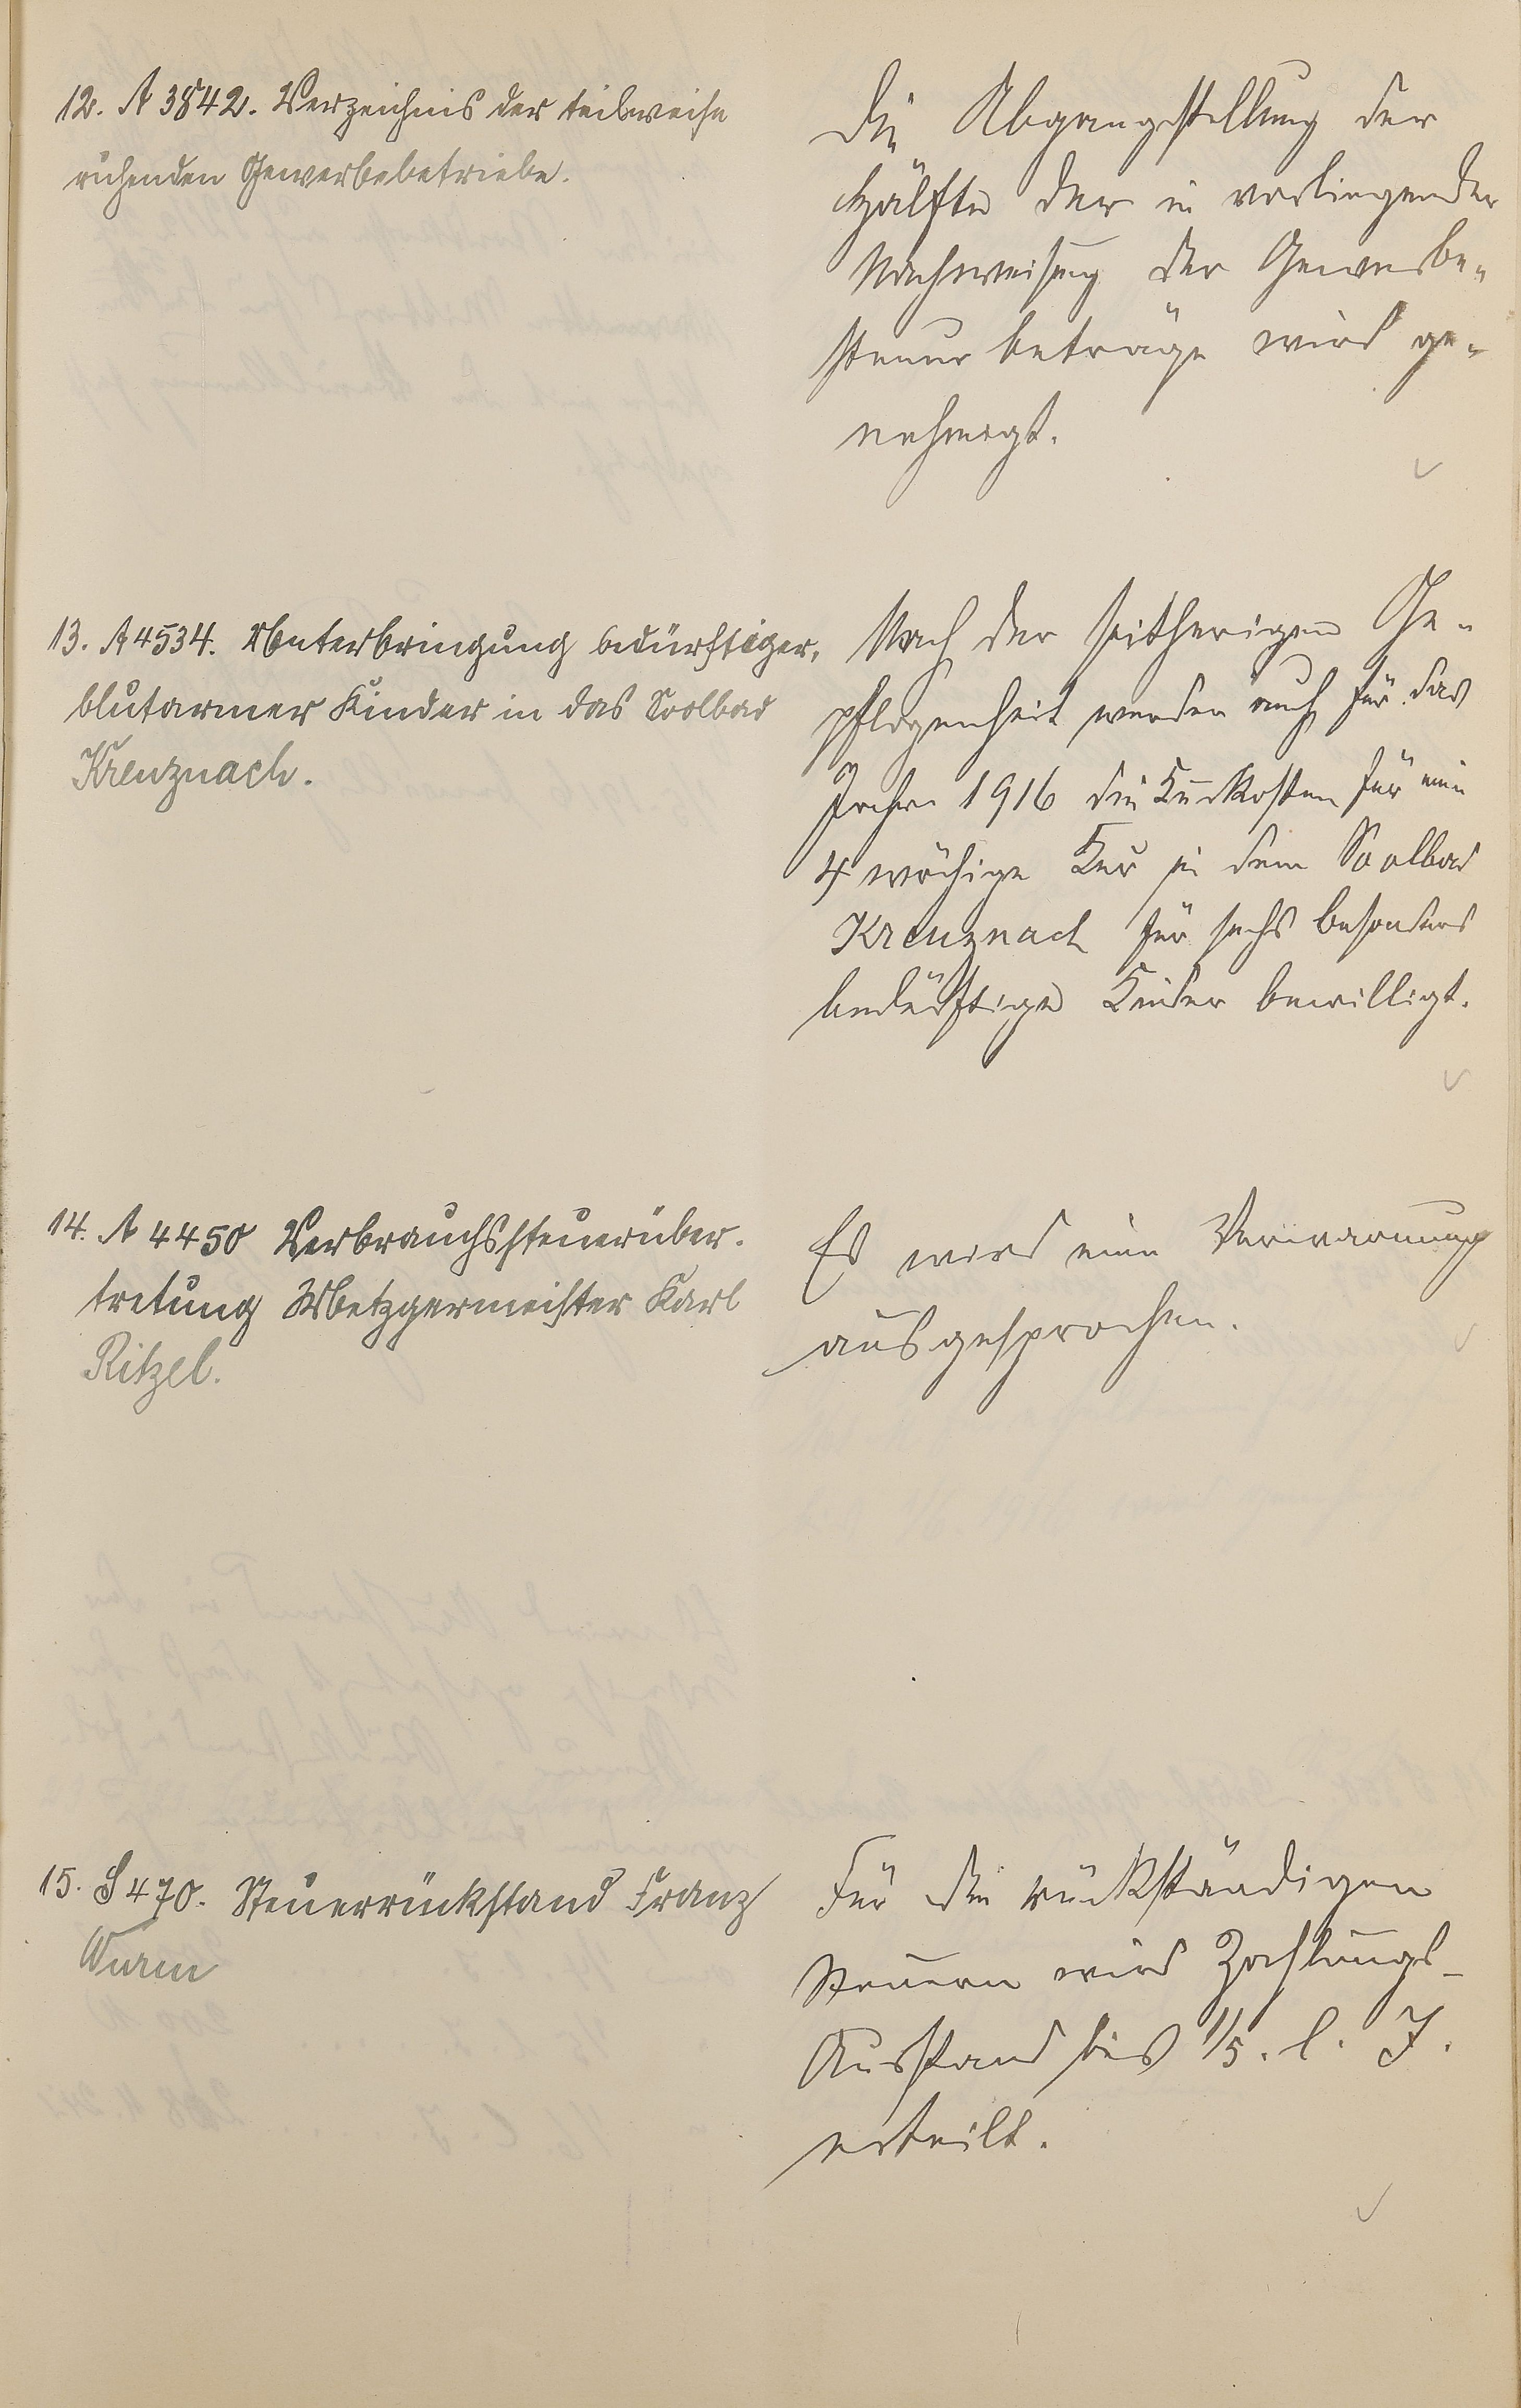 12. A 3842. Verzeichnis der teilweise
ruhenden Gewerbebetriebe.
Die Abgangstellung der
Hälfte der in vorliegender
Nachweisung der Gewerbe-
steuerbeträge wird ge-
nehmigt.
13. A 4534. Unterbringung bedürftiger,
blutarmer Kinder in das Soolbad
Kreuznach.
Nach der seitherigen Ge-
pflogenheit werden auch für das
Jahr 1916 die Kurkosten für eine
4 wöchige Kur in dem Soolbad
Kreuznach für sechs besonders
bedürftige Kinder bewilligt.
14. A 4450 Verbrauchssteuerüber-
tretung Metzgermeister Karl
Ritzel.
Es wird eine Verwarnung
ausgesprochen.
15. S 470. Steuerrückstand Franz
Wurm
Für die rückständigen
Steuern wird Zahlungs-
Ausstand bis 1/5. l. J.
erteilt.